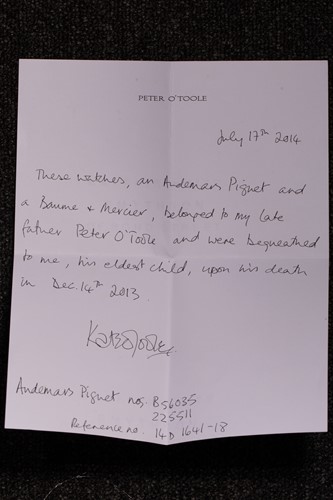 PETER O'TOOLE
July 17th 2014
These watches, an Audemars Piguet and
a Baume & Mercier, belonged to my late
father Peter O'Toole and were bequeathed
to me, his eldest child, upon his death
in Dec. 14th 2013.
Kate O'Toole
Audemars Piguet nos. B56035
225511
Reference no. 14D 1641-18